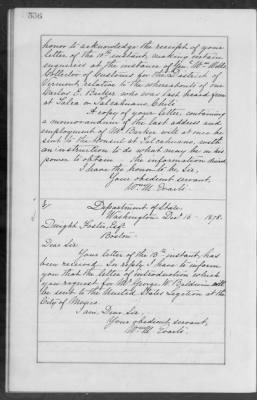 556
honor to acknowledge the receipt of your
letter of the 10th instant, making certain
enquiries at the instance of Hon. Wm Wells
Collector of Customs for the District of
Vermont, relative to the whereabouts of one
Carlos E. Barker who was last heard from
at Talca or Talcahuano, Chili.
A copy of your letter, containing
a memorandum of the last address and
employment of Mr Barker will at once be
sent to the Consul at Talcahuano, with
an instruction to do what may be in his
power to obtain the information desired
I have the honor to be, Sir,
Your obedient servant,
Wm M. Evarts.
Department of State,
Washington Dec 16 - 1878.
Dwight Foster, Esqr
Boston
Dear Sir:
Your letter of the 13th instant, has
been received. In reply I have to inform
you that the letter of introduction which
you request for Mr George W. Baldwin will
be sent to the United States Legation at the
City of Mexico.
I am Dear Sir,
Your obedient, servant,
Wm M. Evarts.